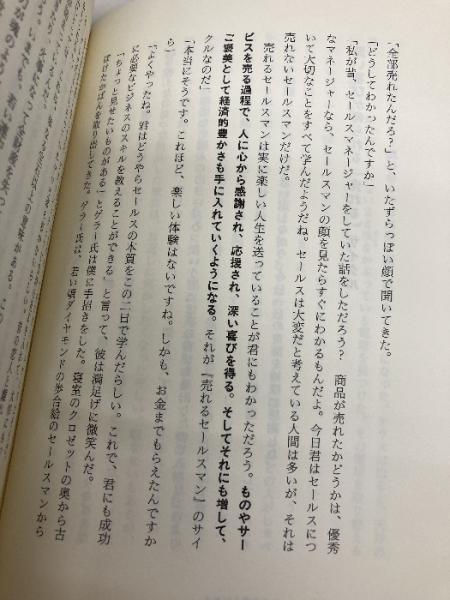 「全部売れたんだろ？」と、いたずらっぽい顔で聞いてきた。
「どうしてわかったんですか」
「私が昔、セールスマネージャーをしていた話をしただろう？　商品が売れたかどうかは、優秀
なマネージャーなら、セールスマンの顔を見たらすぐにわかるもんだよ。今日君はセールスにつ
いて大切なことをすべて学んだようだね。セールスは大変だと考えている人間は多いが、それは
売れないセールスマンだけだ。
売れるセールスマンは実に楽しい人生を送っていることが君にもわかっただろう。ものやサー
ビスを売る過程で、人に心から感謝され、応援され、深い喜びを得る。そしてそれにも増して、
ご褒美として経済的豊かさも手に入れていくようになる。それが『売れるセールスマン』のサイ
クルなのだ」
「本当にそうです。これほど、楽しい体験はないですね。しかも、お金までもらえたんですか
ら」
「よくやったね。君はどうやらセールスの本質をこの二日で学んだらしい。これで、君にも成功
に必要なビジネスのスキルを教えることができる」と言って、彼は満足げに微笑んだ。
「ちょっと見せたいものがある」とゲラー氏は僕に手招きをした。寝室のクロゼットの奥から古
ぼけたかばんを取り出してきた。ゲラー氏は、若い頃ダイヤモンドの歩合給のセールスマンから